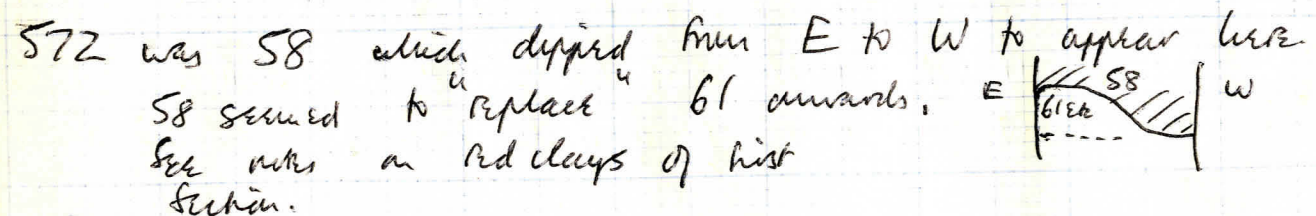 572 was 58 which dipped from E to W to appear here.
58 seemed to "replace" 61 onwards.
See notes on red clays of first
section.
E 58 W
61 etc